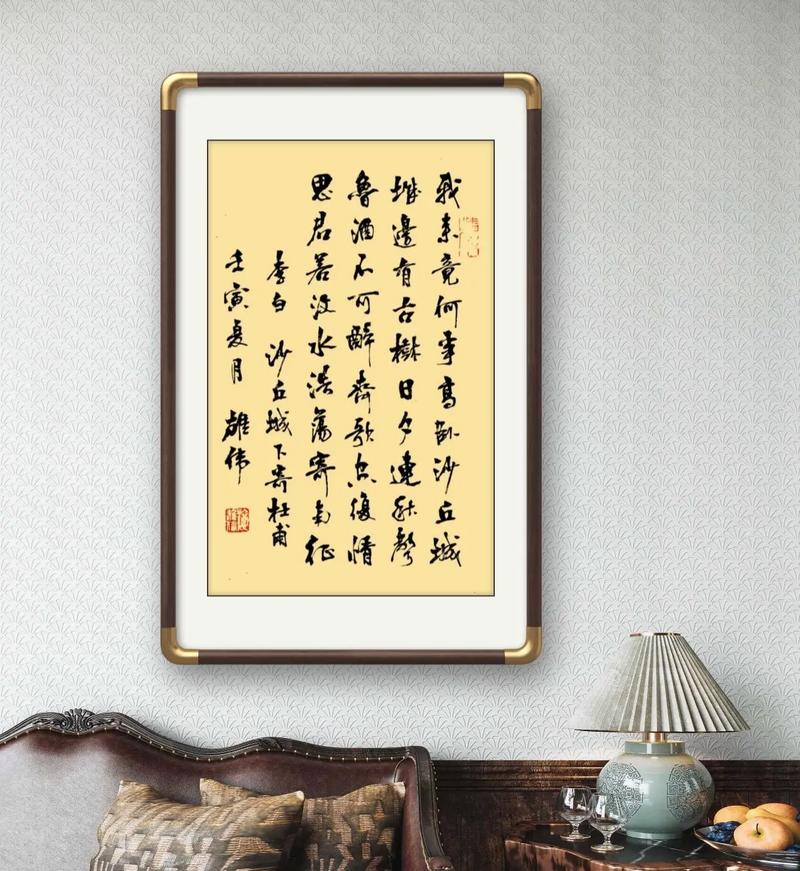 我来竟何事高卧沙丘城
城邊有古樹日夕連秋聲
魯酒不可醉齊歌空復情
思君若汶水浩蕩寄南征
李白 沙丘城下寄杜甫
壬寅夏月 雄伟